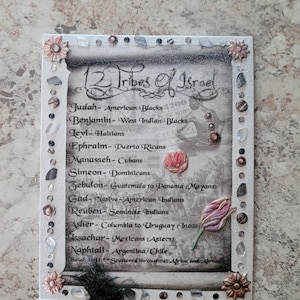 12 Tribes Of Israel
Judah- American Blacks
Benjamin- West Indian Blacks
Levi- Haitians
Ephraim- Puerto Ricans
Manasseh- Cubans
Simeon- Dominicans
Zebulon- Guatemala to Panama (Mayans)
Gad- Native-American Indians
Reuben- Seminole Indians
Asher- Columbia to Uruguay (Incas)
Issachar- Mexicans (Aztecs)
Naphtali- Argentina/Chile
Scattered throughout Africa and